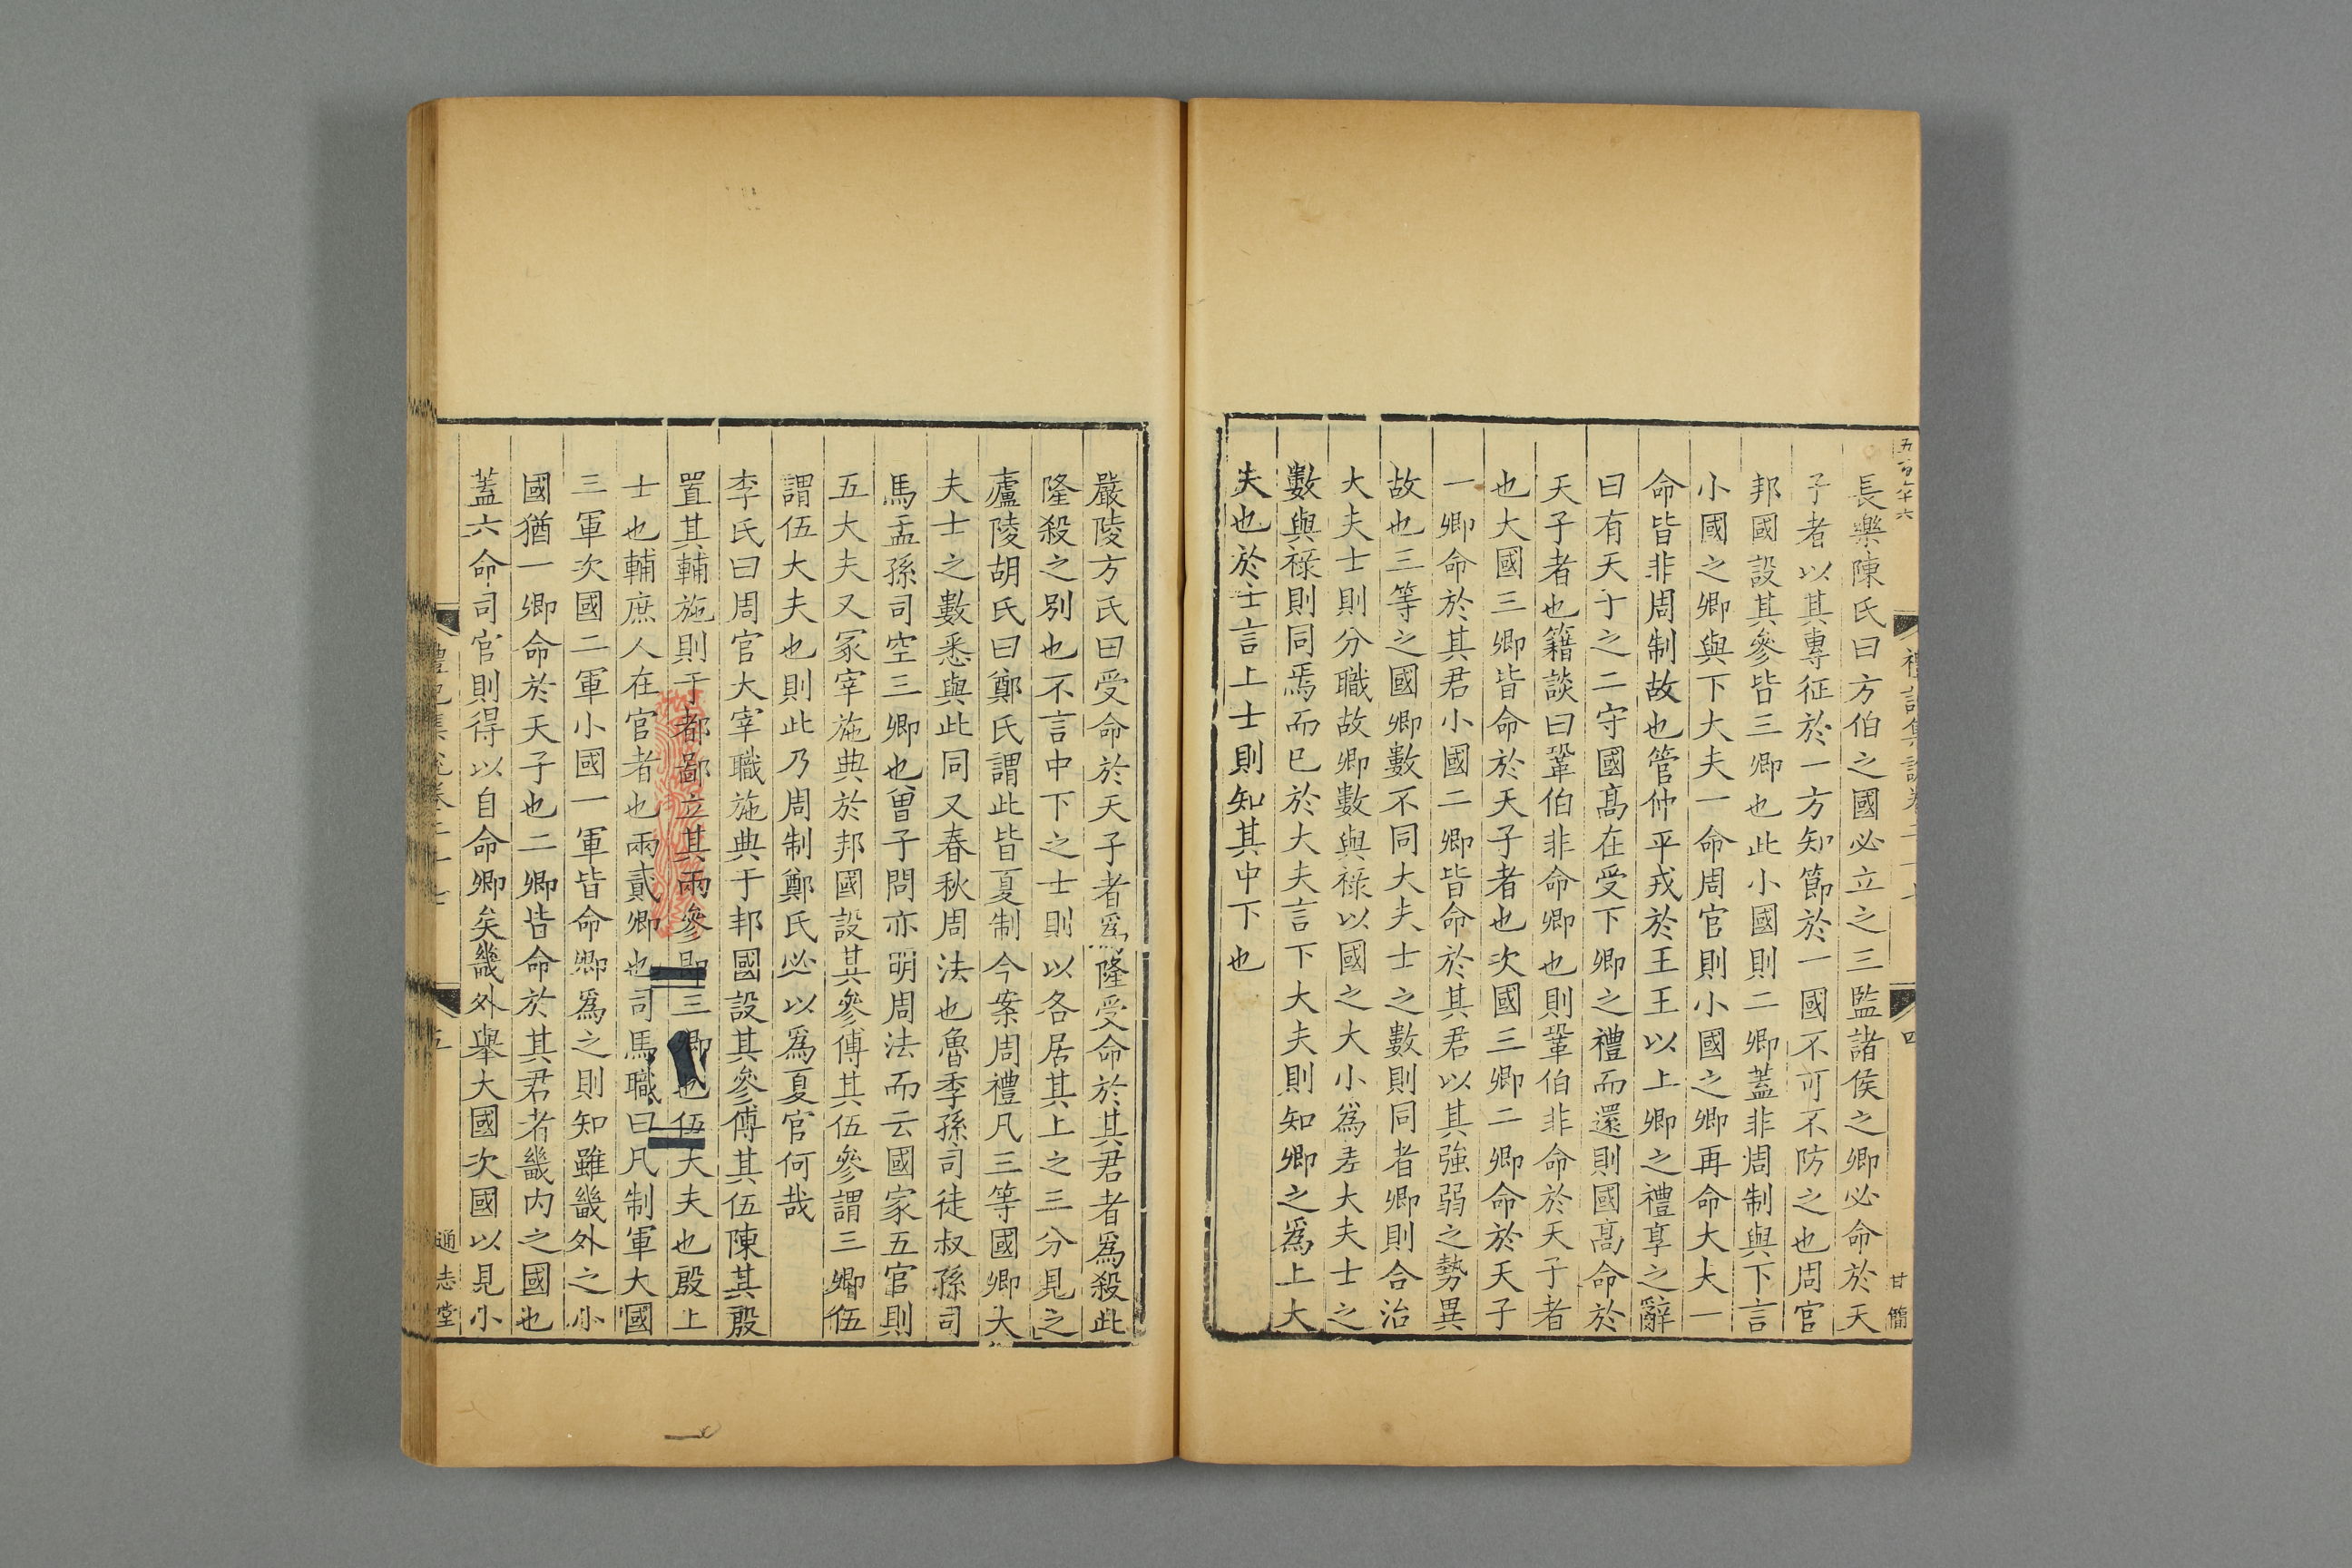 五百六十六
禮記集說卷二十七
四
甘簡
長樂陳氏曰方伯之國必立之三監諸侯之卿必命於天
子者以其專征於一方知節於一國不可不防之也周官
邦國設其參皆三卿也此小國則二卿蓋非周制與下言
小國之卿與下大夫一命周官則小國之卿再命大夫一
命皆非周制故也管仲平戎於王王以上卿之禮享之辭
曰有天子之二守國高在受下卿之禮而還則國高命於
天子者也籍談曰鞏伯非命卿也則鞏伯非命於天子者
也大國三卿皆命於天子者也次國三卿二卿命於天子
一卿命於其君小國二卿皆命於其君以其強弱之勢異
故也三等之國卿數不同大夫士之數則同者卿則合治
大夫士則分職故卿數與祿以國之大小為差大夫士之
數與祿則同焉而已於大夫言下大夫則知卿之為上大
夫也於士言上士則知其中下也
嚴陵方氏曰受命於天子者為隆受命於其君者為殺此
隆殺之別也不言中下之士則以各居其上之三分見之
廬陵胡氏曰鄭氏謂此皆夏制今案周禮凡三等國卿大
夫士之數悉與此同又春秋周法也魯季孫司徒叔孫司
馬孟孫司空三卿也曾子問亦明周法而云國家五官則
五大夫又冢宰施典於邦國設其參傅其伍參謂三卿伍
謂伍大夫也則此乃周制鄭氏必以為夏官何哉
李氏曰周官大宰職施典于邦國設其參傅其伍陳其殷
置其輔施則于都鄙立其兩參即三卿也伍大夫也殷上
士也輔庶人在官者也兩貳卿也司馬職曰凡制軍大國
三軍次國二軍小國一軍皆命卿為之則知雖畿外之小
國猶一卿命於天子也二卿皆命於其君者畿內之國也
蓋六命司官則得以自命卿矣畿外舉大國次國以見小
禮記集說卷二十七
五
通志堂